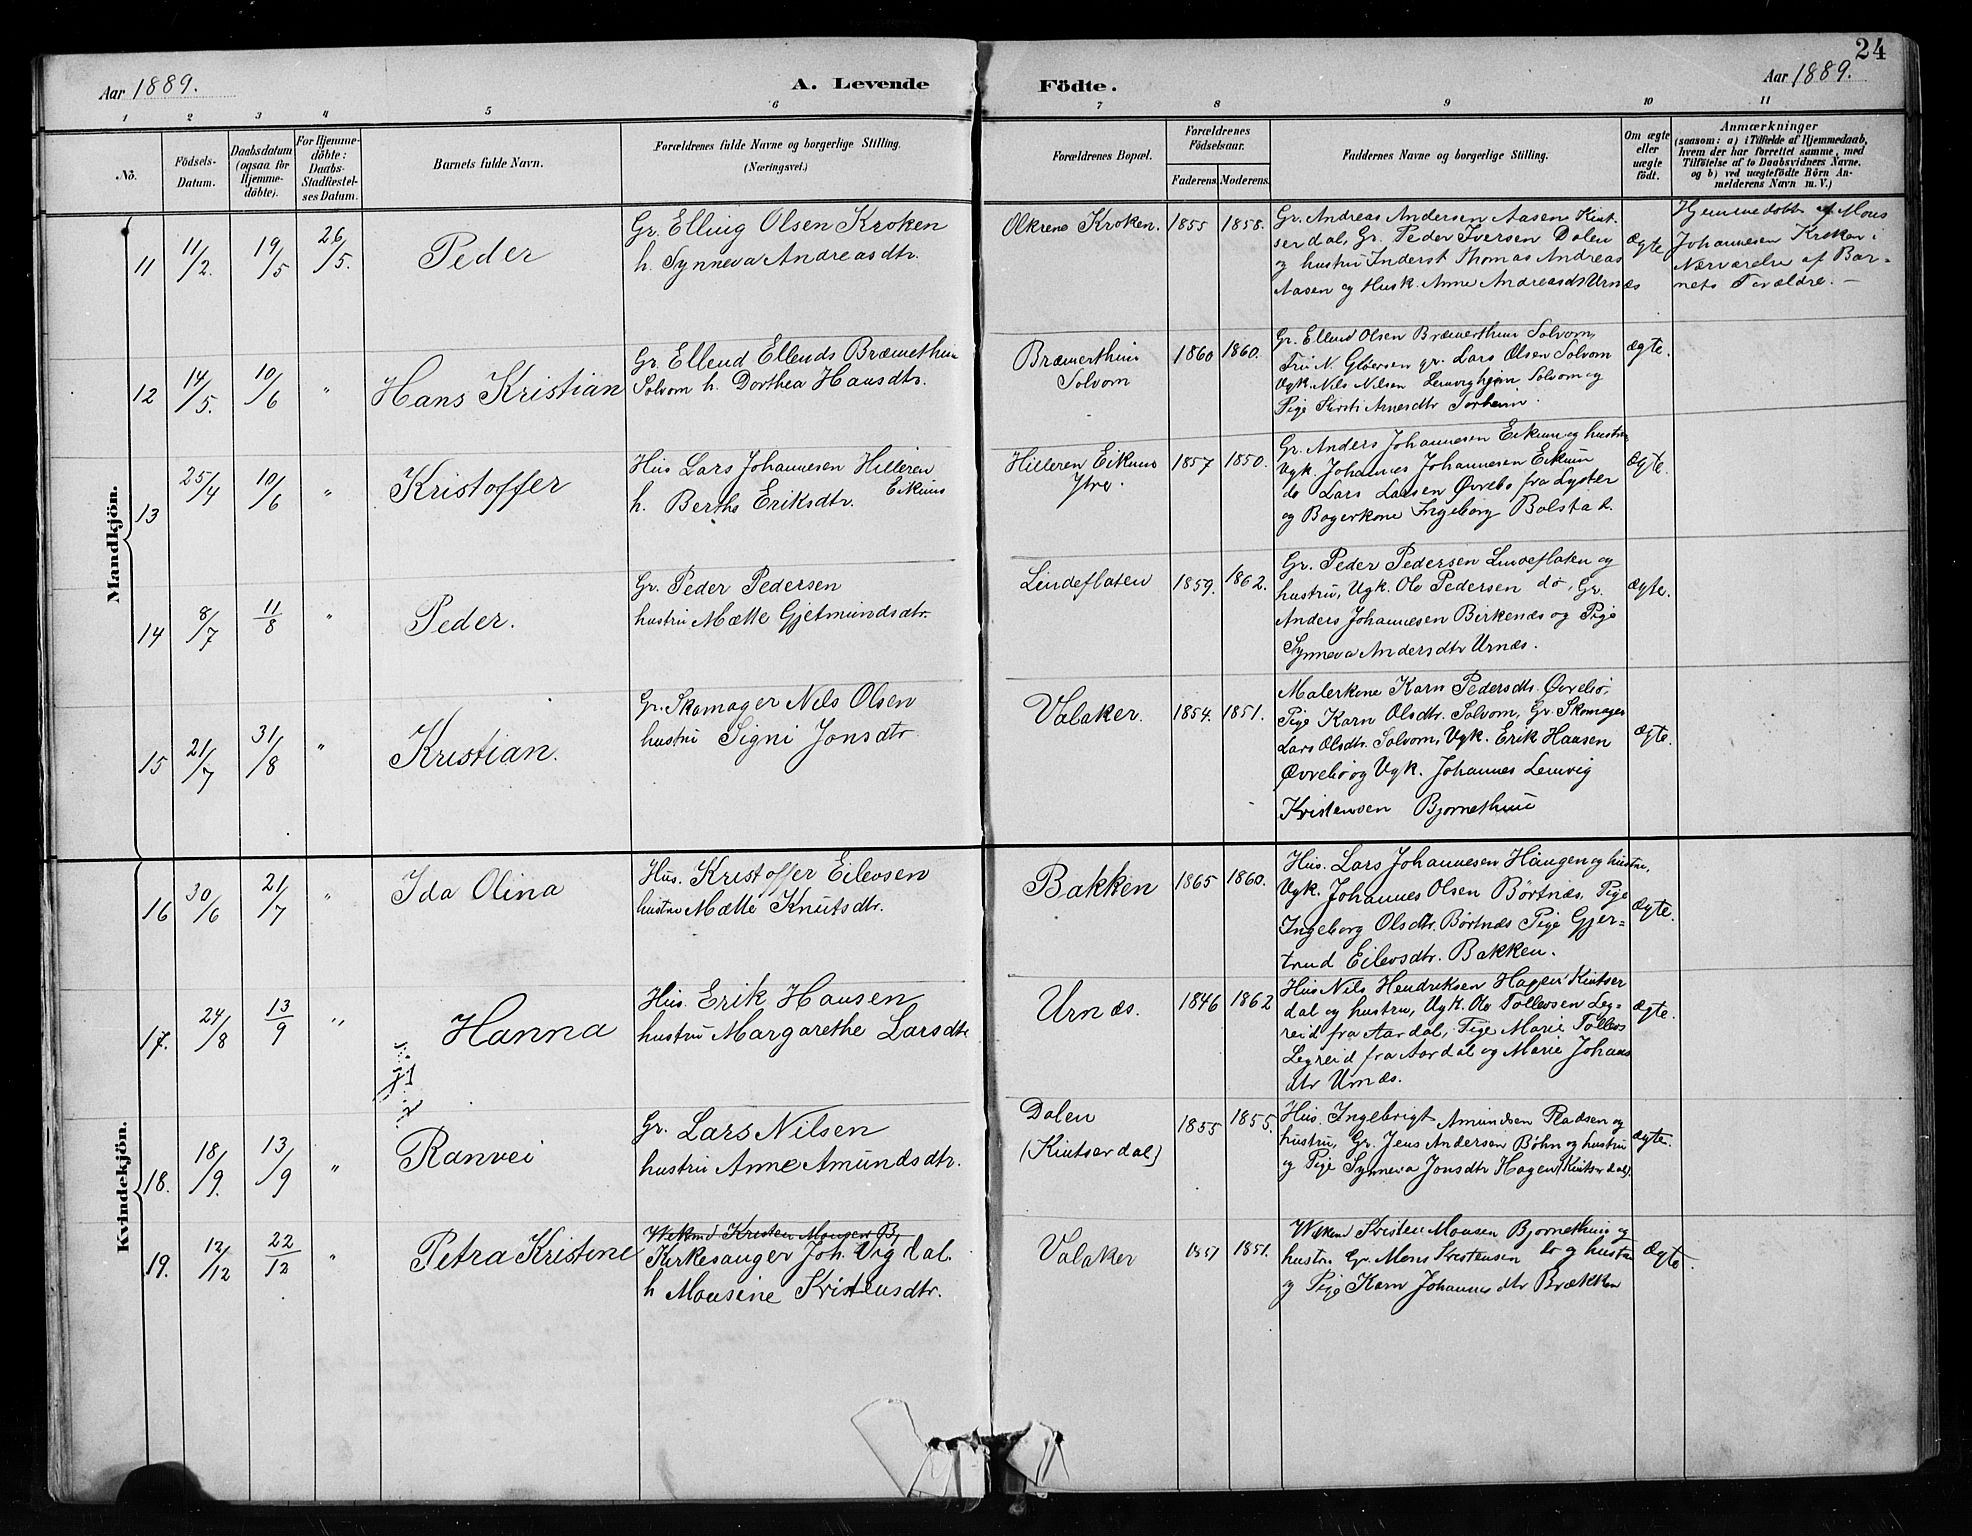 24
Aar 1889.
A. Levende
Födte.
Aar 1889.
1 2 3 4 5 6 7 8 9 10 11
No.
Födsels-
Datum.
Daabsdatum
(ogsaa for
Hjemme-
döbte).
For Hjemme-
döbte:
Daabs-
Stadfæstel-
ses Datum.
Barnets fulde Navn.
Forældrenes fulde Navne og borgerlige Stilling.
(Næringsvei.)
Forældrenes Bopæl.
Forældrenes
Födselsaar.
Faderens.
Moderens.
Faddernes Navne og borgerlige Stilling.
Om ægte
eller
uægte
födt.
Anmærkninger
(saasom: a) i Tilfælde af Hjemmedaab,
hvem der har forrettet samme, med
Tilföielse af to Daabsvidners Navne.
og b) ved uægtefödte Börn An-
melderens Navn m. V.)
Mandkjön.
11 11/2. 19/5 26/5. Peder
Gr. Elling Olsen Kroken
h. Synneva Andreasdtr.
Kroken. 1855 1858.
Gr. Andreas Andersen Aasen Kint-
serdal, Gr. Peder Iversen Dalen
og hustru Inderst Thomas Andreas
Aasen og Husk. Anne Andreasdt Urnæs
Ægte
Hjemmedøbt af Mons
Johannesen Kroken i
Nærværelse af Bar-
nets Forældre. —
12 14/5. 10/6 " Hans Kristian
Gr. Ellend Ellends
Solvorn h. Dorthea Hansdtr.
Solvorn
1860 1860.
Gr. Ellend Olsen Solvorn,
gr. Lars Olsen Solvorn
Ugk. Nils Nilsen Solvorn og
Pige Kirsti Arnesdtr Sørheim.
ægte.
13 25/4 10/6 " Kristoffer
Hus Lars Johannesen Hilleren
h. Berthe Eriksdtr. Eikum
Hilleren Eikum
Ytre.
1857 1850.
Gr. Anders Johannesen Eikum og hustru
Ugk. Johannes Johannesen Eikum
do Lars Larsen Øvrebø fra Lyster
og Bagerkone Ingeborg Bolstad.
Ægte.
14 8/7 11/8 " Peder.
Gr. Peder Pedersen
hustru Mætte Gjetmundsdtr.
Lindeflaten 1859. 1862.
Gr. Peder Pedersen Lindeflaten og
hustru, Ugk. Ole Pedersen do, Gr.
Anders Johannesen Birkenæs og Pige
Synneva Andersdtr Urnæs.
ægte.
15 21/7 31/8 " Kristian.
Gr. Skomager Nils Olsen
hustru Signi Jonsdtr
Valaker. 1854. 1851.
Malerkone Karn Pedersdtr. Øvrebø,
Pige Karn Olsdtr. Solvorn, Gr. Skomager
Lars Olsdtr. Solvorn, Ugk. Erik Hansen
Øvrebø og Ugk. Johannes Lemvig
Kristensen Bjørnethun
ægte.
Kvindekjön.
16 30/6 21/7 " Ida Olina
Hus. Kristoffer Eilevsen
hustru Mætte Knutsdtr.
Bakken 1865 1860.
Hus. Lars Johannesen Haugen og hustru,
Ugk. Johannes Olsen Børtnæs, Pige
Ingeborg Olsdtr. Børtnæs Pige Gjer-
trud Eilevsdtr. Bakken.
Ægte.
17. 24/8 13/9 " Hanna
Hus. Erik Hansen
hustru Margarethe Larsdtr
Urnæs. 1846 1862
Hus Nils Hendriksen Hagen Kintser
dal og hustru, Ugk. Ole Tollevsen Leg-
reid fra Aardal, Pige Marie Tollevs
Legreid fra Aardal og Marie Johans
dtr Urnæs.
ægte.
18. 18/9. 13/9 " Ranvei
Gr. Lars Nilsen
hustru Anne Amundsdtr.
Dalen
(Kintserdal)
1855 1855.
Hus. Ingebrigt Amundsen Pladsen og
hustru, Gr. Jens Andersen Bøhn og hustru
og Pige Synneva Jonsdtr Hagen (Kintserdal).
ægte.
19. 12/12 22/12 " Petra Kristine
Kristen Monsen Bj
Kirkesanger Joh. Vigdal.
h Monsine Kristensdtr.
Valaker 1851 1851.
Kristen Monsen Bjørnethun og
hustru Gr. Mons Kristensen do og hustru
og Pige Karn Johannesdtr Brækken
Ægte.